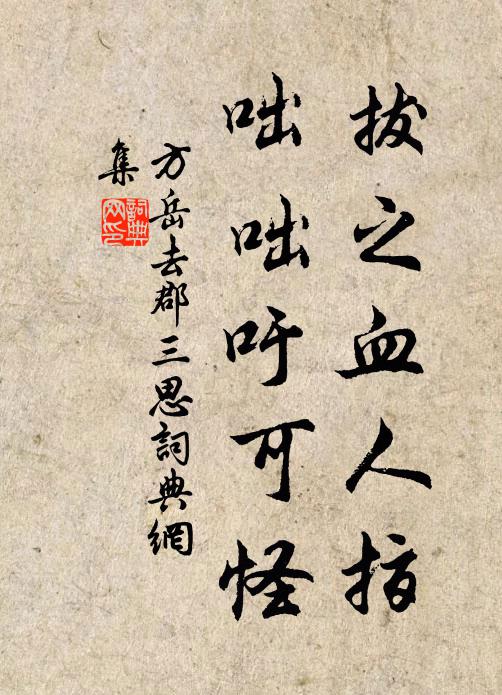 拔之血人指
咄咄吁可怪
方岳去郡三思詞典網
集
詞典网印